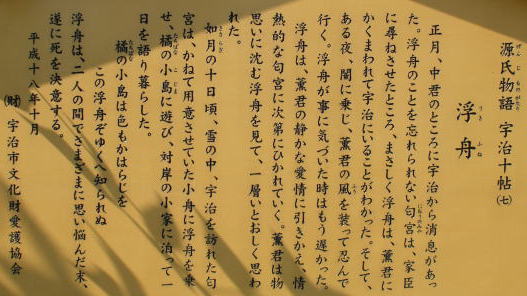 源氏物語 宇治十帖(七)
浮舟
正月、中君のところに宇治から消息があっ
た。浮舟のことを忘れられない匂宮は、家臣
に尋ねさせたところ、まさしく浮舟は、薫君に
かくまわれて宇治にいることがわかった。そして、
ある夜、闇に乗じ薫君の風を装って忍んで
行く。浮舟が事に気づいた時はもう遅かった。
浮舟は、薫君の静かな愛情に引きかえ、情
熱的な匂宮に次第にひかれていく。薫君は物
思いに沈む浮舟を見て、一層いとおしく思わ
れた。
如月の十日頃、雪の中、宇治を訪れた匂
宮は、かねて用意させていた小舟に浮舟を乗
せ、橘の小島に遊び、対岸の小家に泊って一
日を語り暮らした。
橘の小島は色もかはらじを
この浮舟ぞゆくへ知られぬ
浮舟は、二人の間でさまざまに思い悩んだ末、
遂に死を決意する。
平成十八年十月
(財)宇治市文化財愛護協会